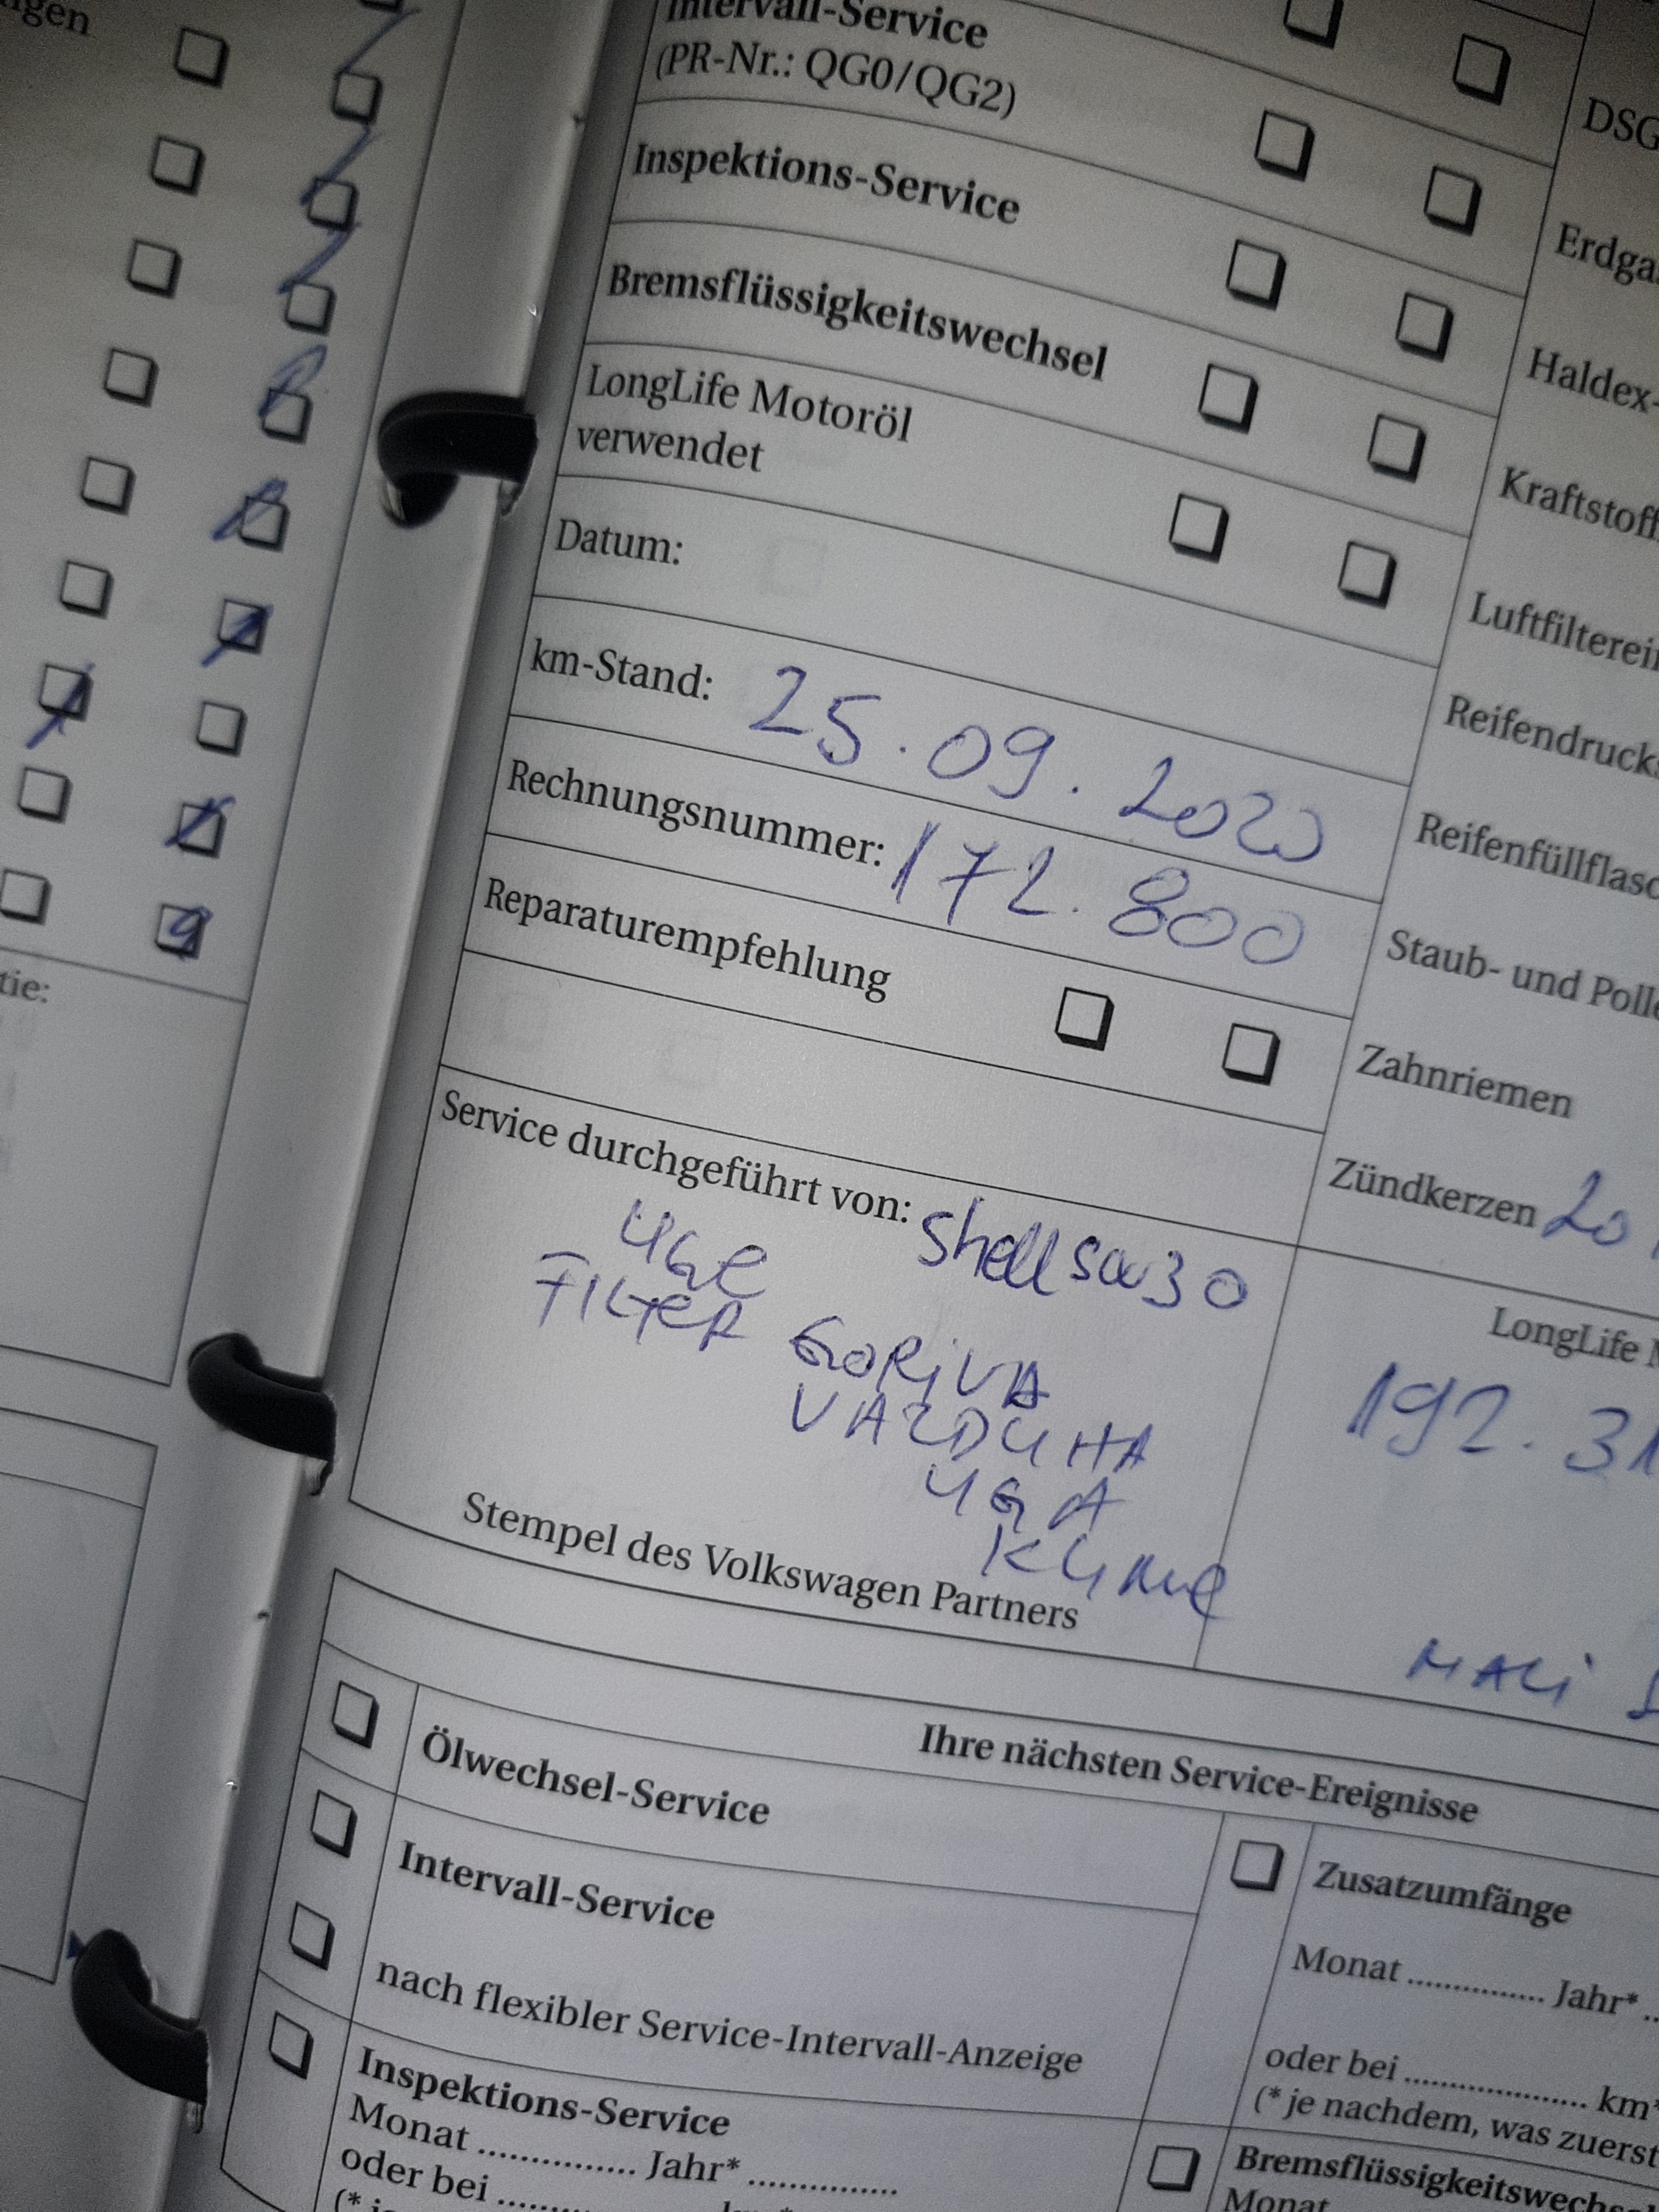 Intervall-Service
(PR-Nr.: QG0/QG2)
Inspektions-Service
Bremsflüssigkeitswechsel
LongLife Motoröl
verwendet
Datum:
km-Stand: 25.09.2020
Rechnungsnummer: 172.800
Reparaturempfehlung
Service durchgeführt von: Shell 5w30
FILTER GORIVA
VAZDUHA
Stempel des Volkswagen Partners
DSG
Erdga
Haldex-
Kraftstoff
Luftfilterein
Reifendruck
Reifenfüllflasc
Staub- und Polle
Zahnriemen
Zündkerzen 20
LongLife
192.31
MALI
Ihre nächsten Service-Ereignisse
Ölwechsel-Service
Intervall-Service
nach flexibler Service-Intervall-Anzeige
Inspektions-Service
Monat .............. Jahr* ..............
oder bei
Zusatzumfänge
Monat .............. Jahr*
oder bei .................... km*
(* je nachdem, was zuerst
Bremsflüssigkeitswechs
Monat
gen
tie: